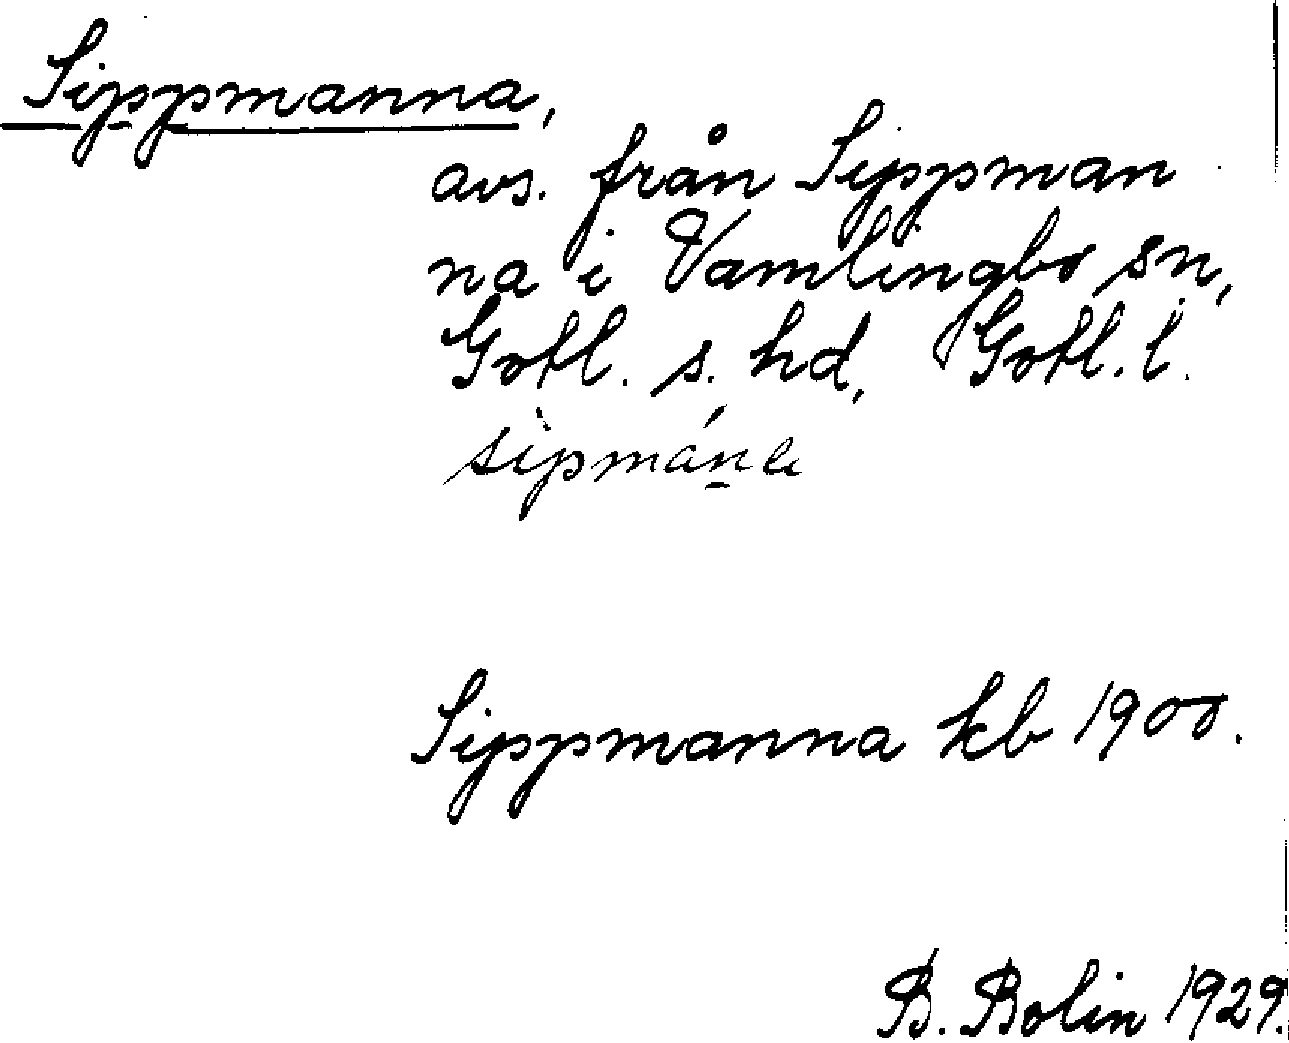 Sippmanna,
avs. från Sippman
na i Vamlingbo sn,
Gotl. s. hd, Gotl. l.
Sippmanna kb 1900.
B. Bolin 1929.